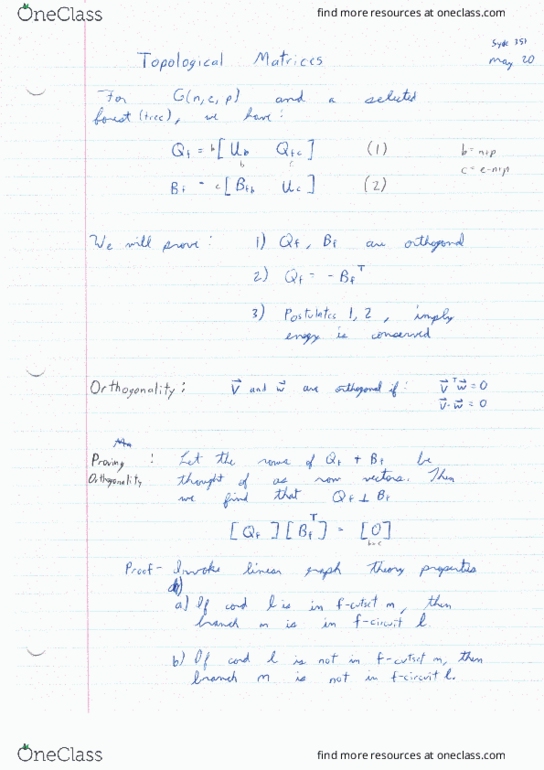 OneClass find more resources at oneclass.com
Syde 351
Topological Matrices may 20
For G(n,e,p) and a selected
forest (tree), we have:
Qf = b[ Ub Qfc ] (1) b = n-p
b c c = e-n+p
Bf = c[ Bfb Uc ] (2)
We will prove: 1) Qf, Bf are orthogonal
2) Qf = -BfT
3) Postulates 1, 2, imply
energy is conserved
Orthogonality: v⃗ and w⃗ are orthogonal if: v⃗ᵀw⃗ = 0
v⃗·w⃗ = 0
Proving : Let the rows of Qf + Bf be
Orthogonality thought of as row vectors. Then
we find that Qf ⊥ Bf
[Qf][BfT] = [0]
b×c
Proof - Invoke linear graph theory properties
a) If cord l is in f-cutset m, then
branch m is in f-circuit l.
b) If cord l is not in f-cutset m, then
branch m is not in f-circuit l.
OneClass find more resources at oneclass.com